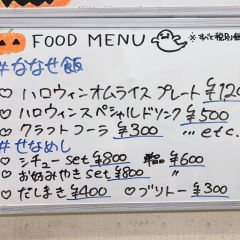 FOOD MENU ※すべて税別
#ななせ飯
♡ ハロウィンオムライスプレート ¥120
♡ ハロウィンスペシャルドリンク ¥500
♡ クラフトコーラ ¥300 ...etc.
#せなめし
♡ シチューset ¥800 単品 ¥600
♡ お好みやきset ¥800 〃
♡ だしまき ¥400 ♡ ブリトー ¥300